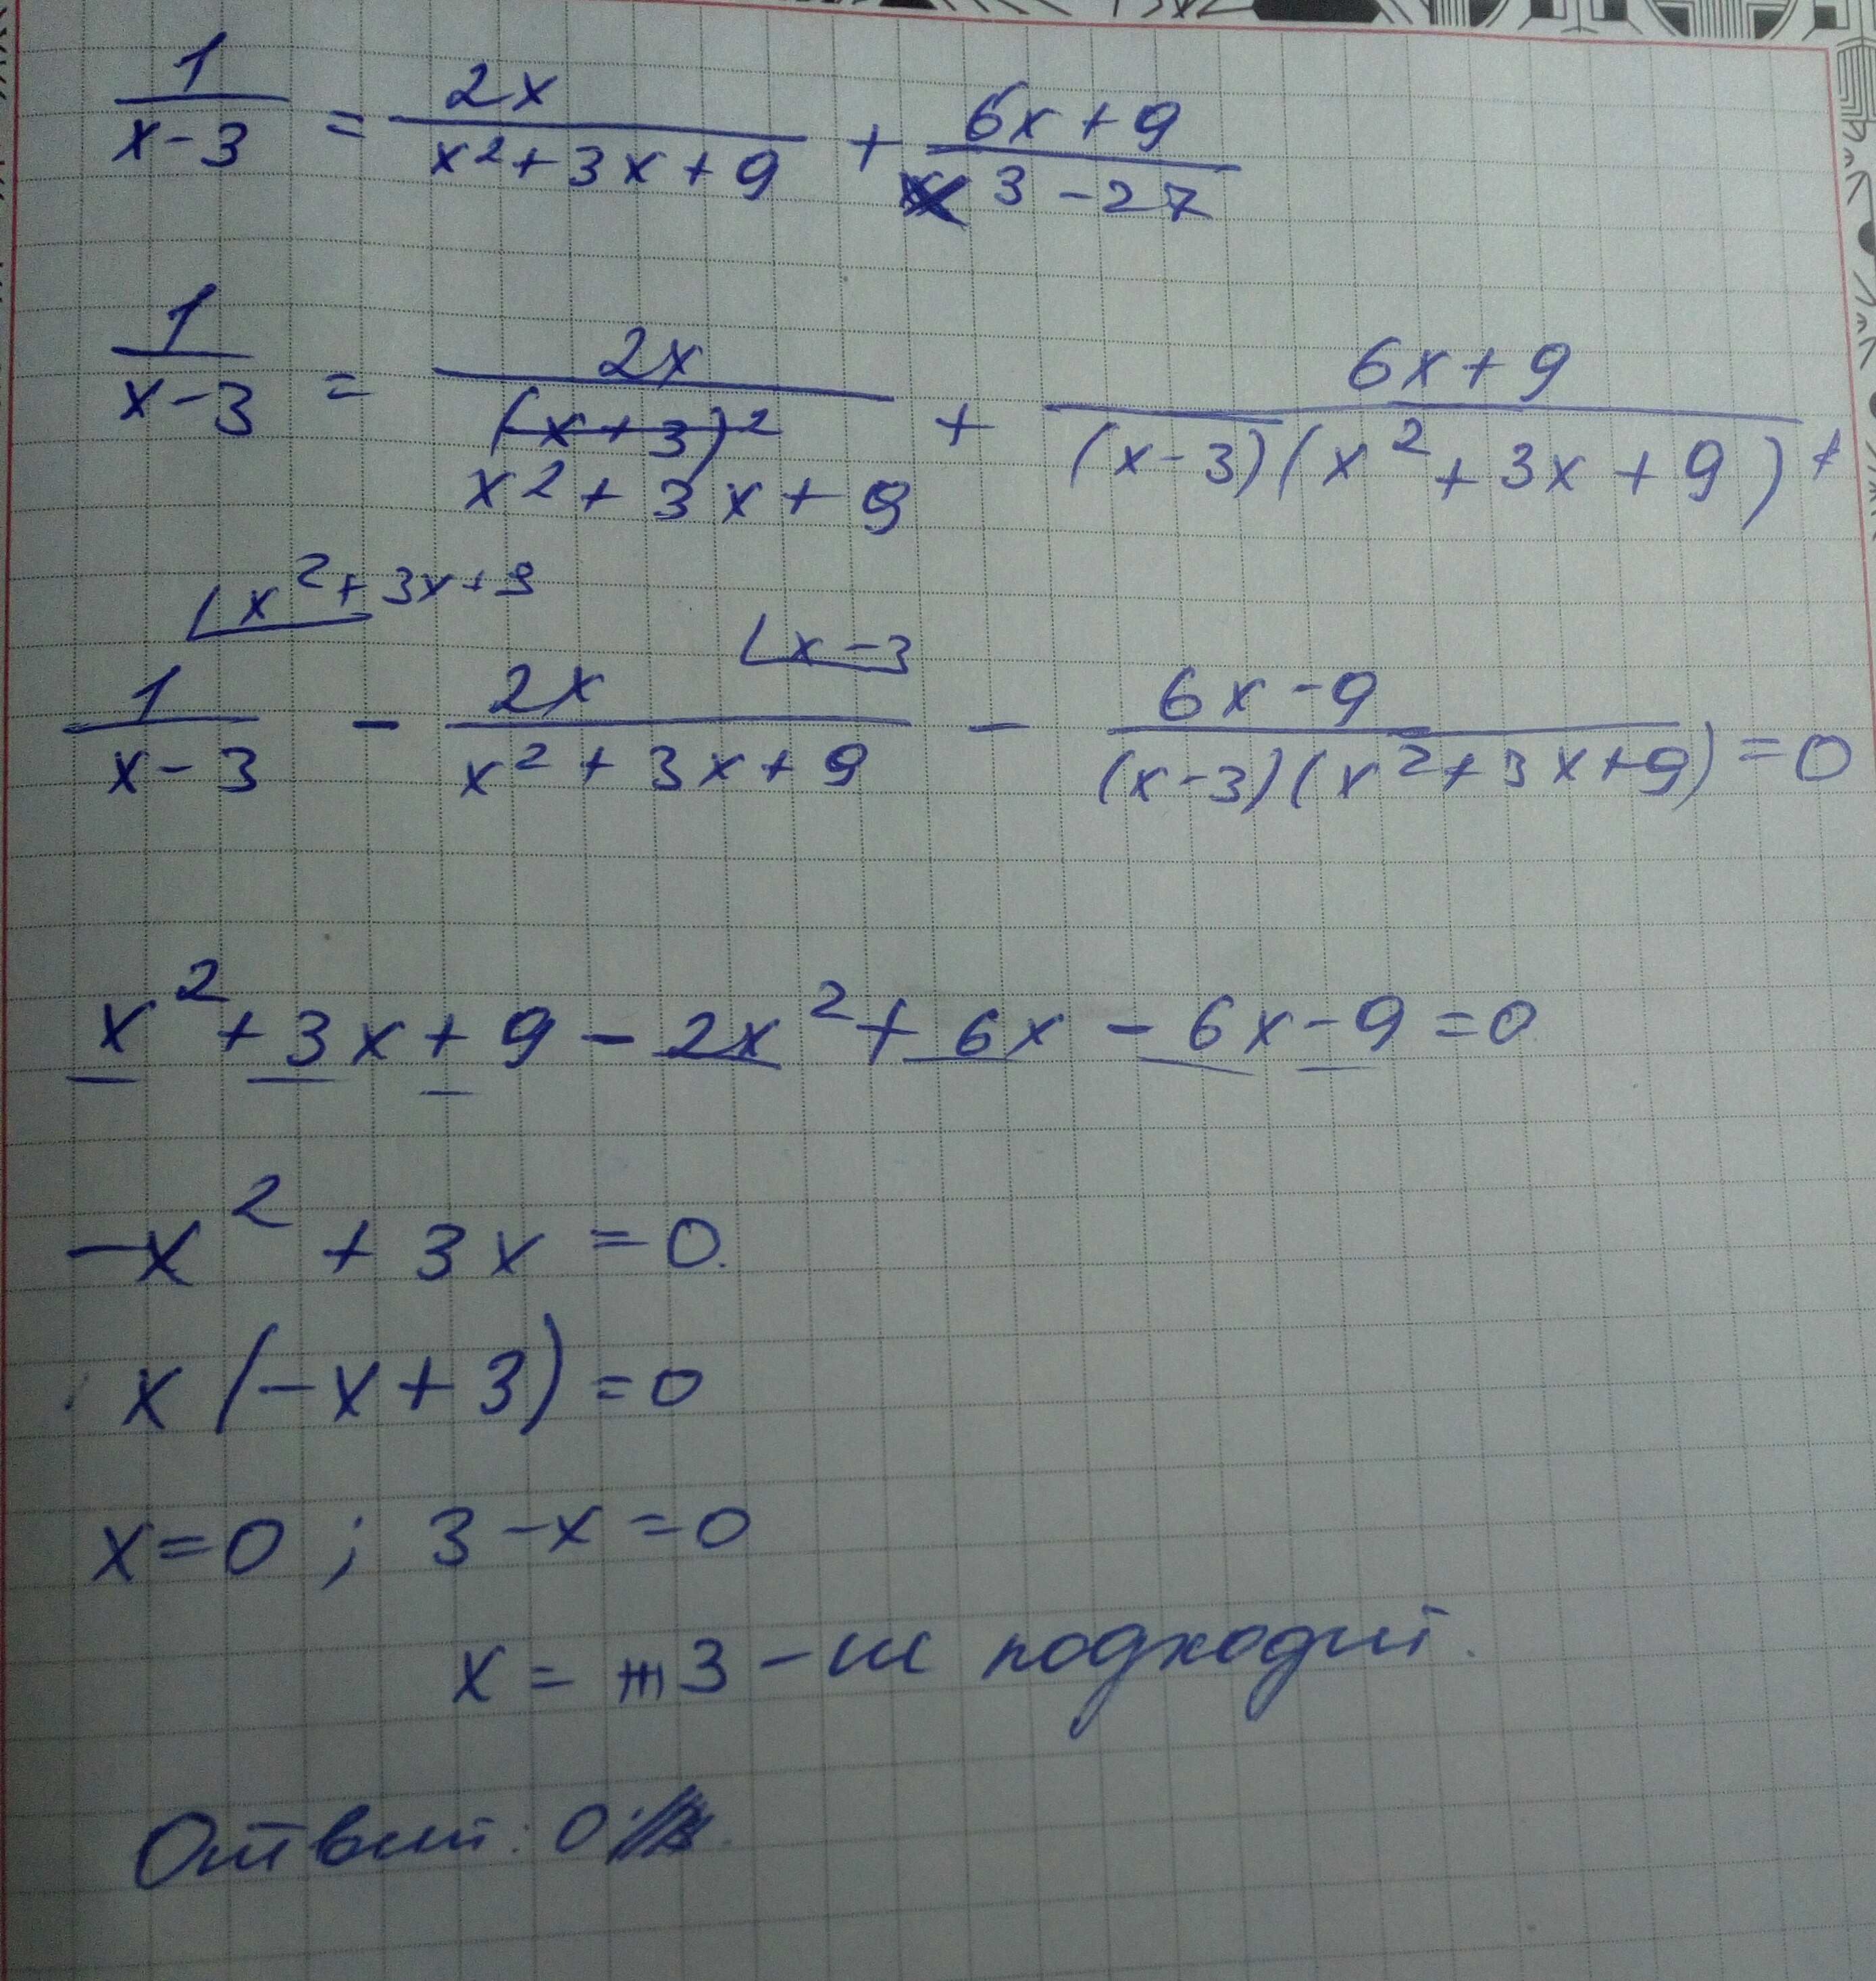 1/(x-3) = 2x/(x²+3x+9) + (6x+9)/(x³-27)
1/(x-3) = 2x/((x+3)² x²+3x+9) + (6x+9)/((x-3)(x²+3x+9)) +
x²+3x+9
x-3
1/(x-3) - 2x/(x²+3x+9) - (6x-9)/((x-3)(x²+3x+9)) = 0
x²+3x+9-2x²+6x-6x-9=0
-x²+3x=0.
x(-x+3)=0
x=0; 3-x=0
x= 3 - не подходит.
Ответ: 0